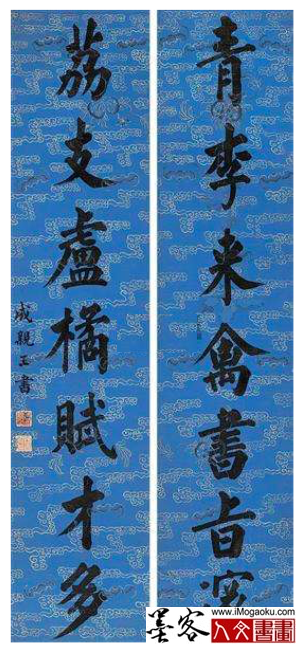 青李来禽書旨
荔支盧橘賦才多
成親王書
www.iMogaoku.com
墨客人文書畫